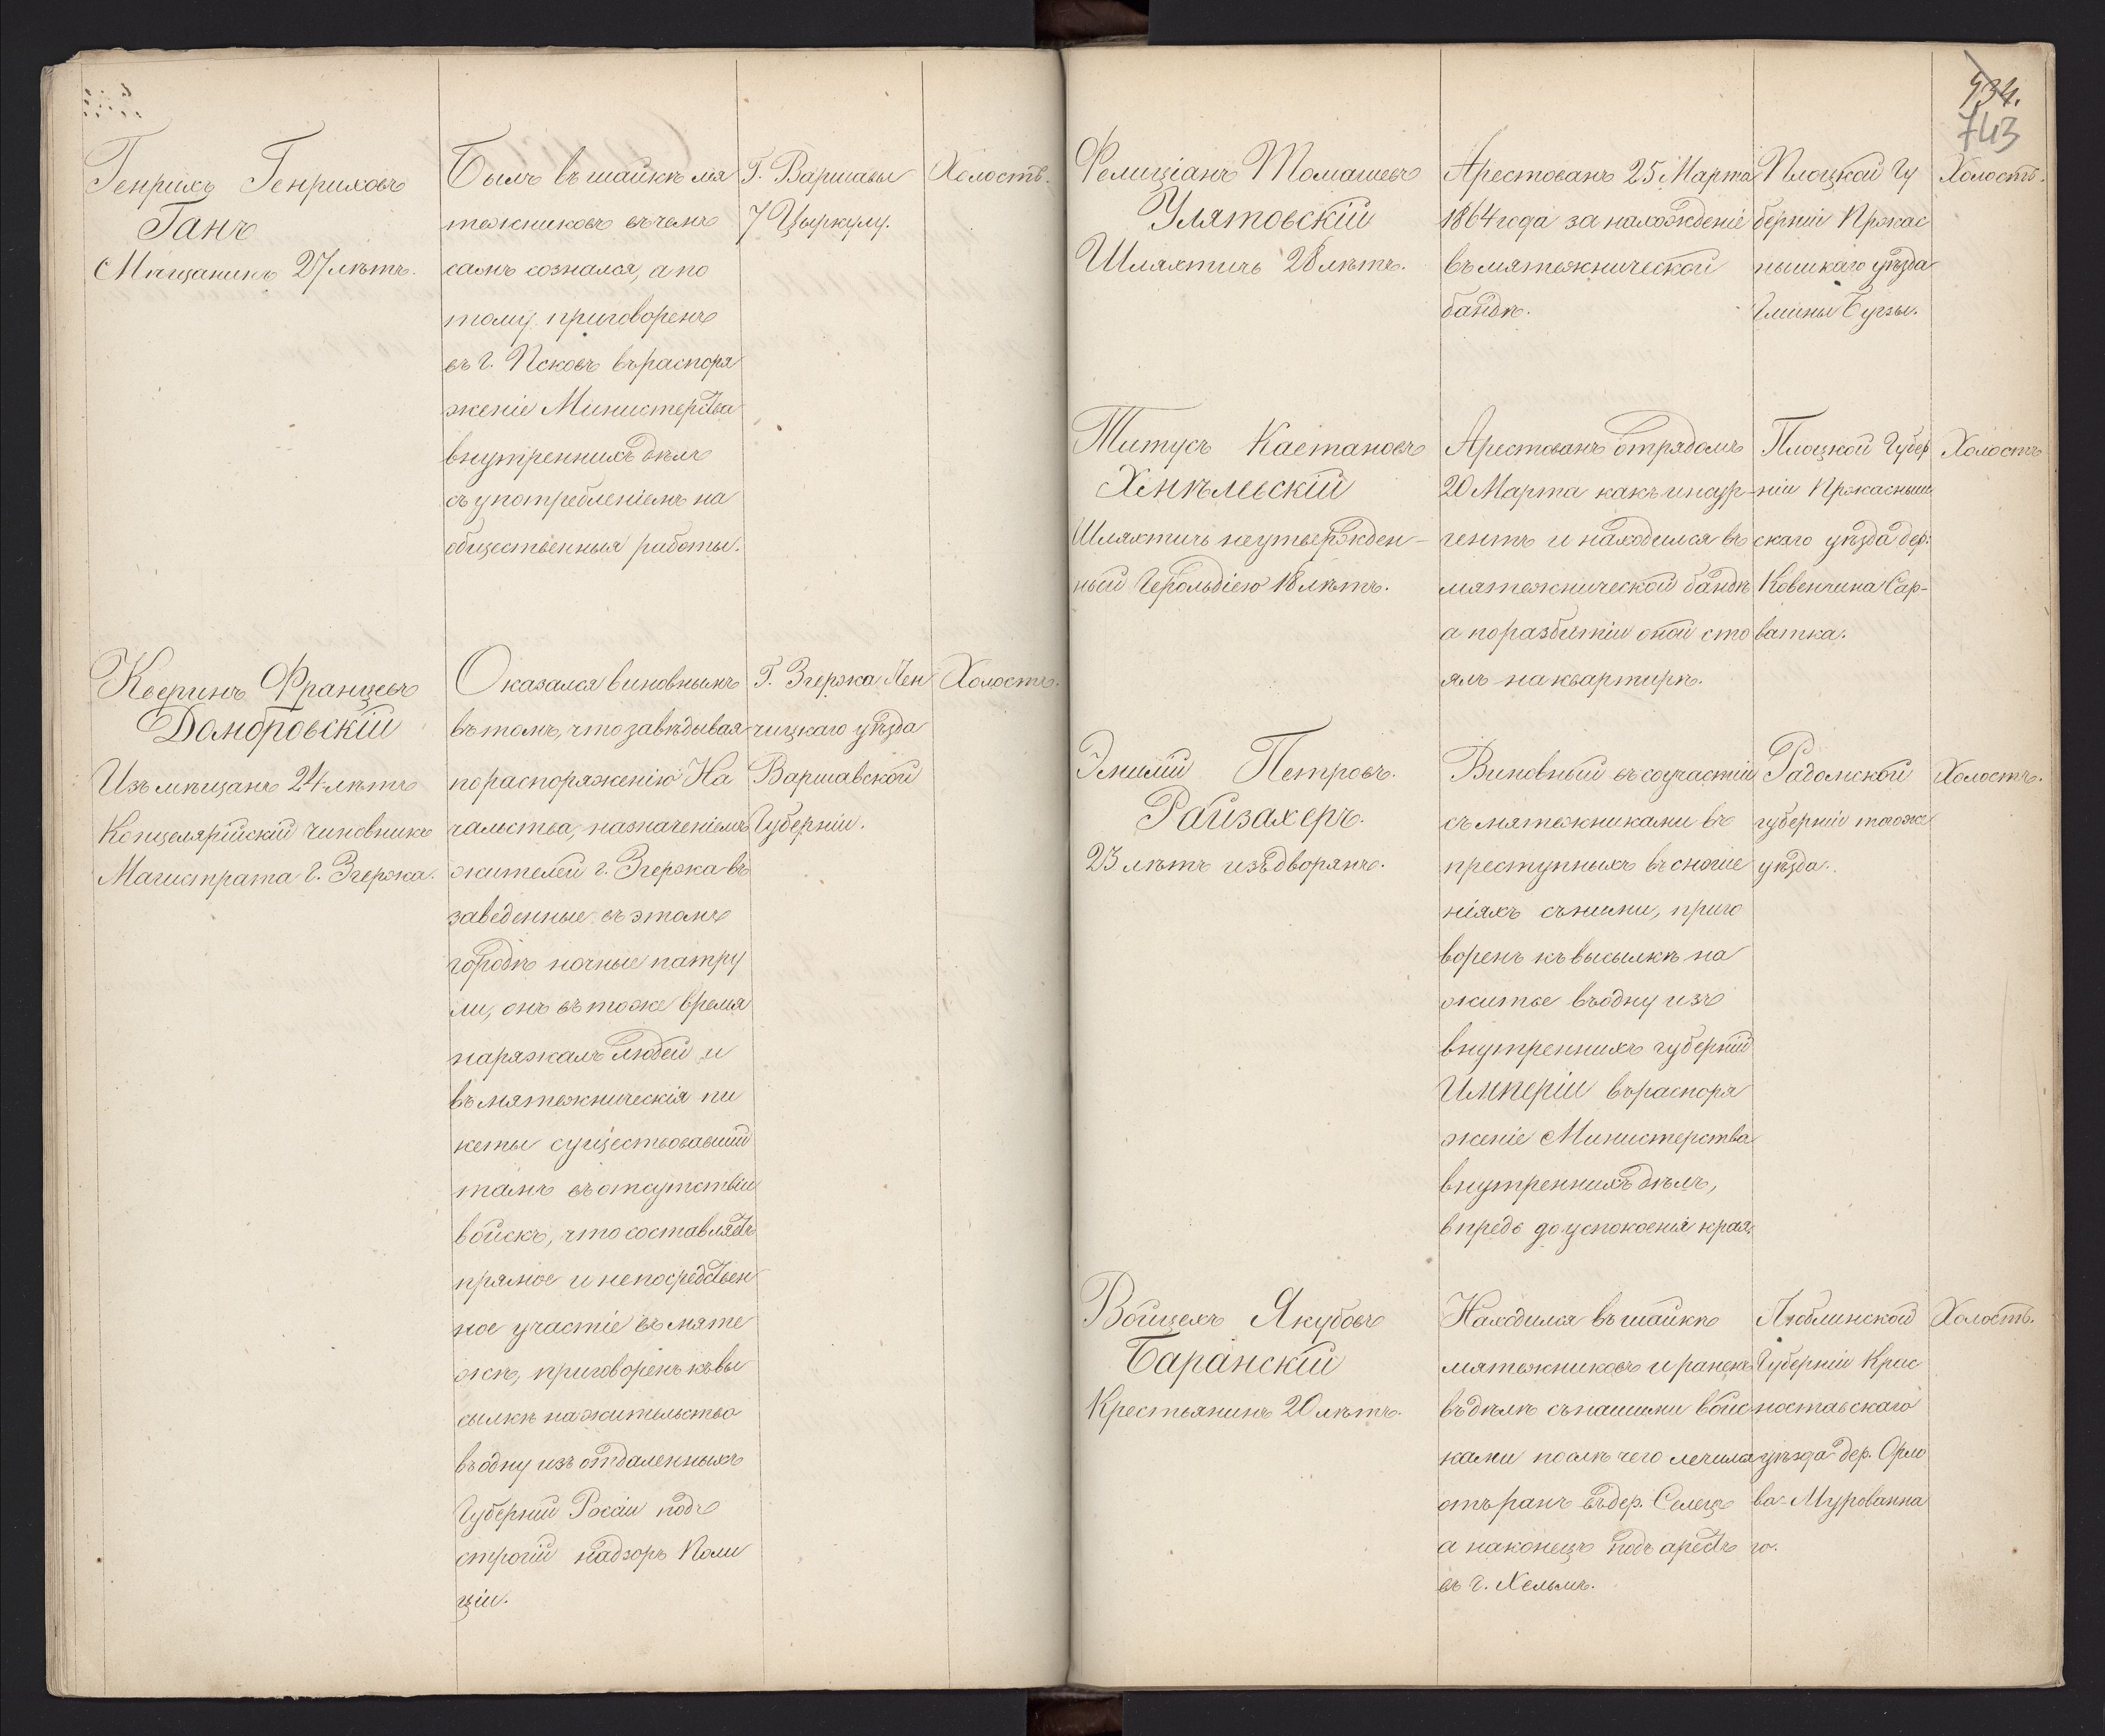 Генрихъ Генриховъ
Ганъ
Мѣщанинъ 27 лѣтъ.
Былъ въ шайкѣ мя
тежниковъ въ чемъ
самъ сознался, а по
тому приговоренъ
въ г. Псковъ въ распоря
женіе Министерства
внутреннихъ дѣлъ
съ употребленіемъ на
общественныя работы.
Г. Варшавы
7 Цыркулу.
Холостъ.
Кверинъ Францевъ
Домбровскій
Изъ мѣщанъ 24 лѣтъ
Концелярійскій чиновникъ
Магистрата г. Згержа.
Оказался виновнымъ
въ томъ, что завѣдывая
по распоряженію На
чальства, назначеніемъ
жителей г. Згержа въ
заведенные въ этомъ
городѣ ночные патру
ли, онъ въ тоже время
наряжалъ людей и
въ мятежническія пи
кеты существовавшій
тамъ въ отсутствіи
войскъ, что составляетъ
прямое и непосредствен
ное участіе въ мяте
жѣ, приговоренъ къ вы
сылкѣ на жительство
въ одну изъ отдаленныхъ
Губерній Россіи подъ
строгій надзоръ Поли
ціи.
Г. Згержа Лен
чицкаго уѣзда
Варшавской
Губерніи.
Холостъ.
934.
743
Фелиціанъ Томашевъ
Улятовскій
Шляхтичъ 28 лѣтъ.
Арестованъ 25 Марта
1864 года за нахожденіе
въ мятежнической
бандѣ.
Плоцкой Гу
берніи Пржас
нышкаго уѣзда
Гмины Бугзы.
Холостъ.
Титусъ Каетановъ
Хенкѣльскій
Шляхтичъ неутвержден-
ный Герольдіею 18 лѣтъ.
Арестованъ отрядомъ
20 Марта какъ инсур-
гентъ и находился въ
мятежнической бандѣ
а по разбитіи оной сто
ялъ на квартирѣ.
Плоцкой Губер
ніи Пржасныш
скаго уѣзда дер:
Ковенчина Сар-
ватка.
Холостъ
Эмилій Петровъ.
Райзахеръ.
23 лѣтъ изъ дворянъ.
Виновный въ соучастіи
съ мятежниками въ
преступныхъ въ сноше
ніяхъ съ ними, приго
воренъ къ высылкѣ на
житье въ одну изъ
внутреннихъ губерній
Имперіи въ распоря
женіе Министерства
внутреннихъ дѣлъ,
впредь до успокоенія края.
Радомской
губерніи тогоже
уѣзда.
Холостъ.
Войцехъ Якубовъ
Баранскій
Крестьянинъ 20 лѣтъ.
Находился въ шайкѣ
мятежниковъ и раненъ
въ дѣлѣ съ нашими войс
ками послѣ чего лечился
отъ ранъ въ дер. Селецъ
а наконецъ подъ арестъ
въ г. Хельмъ.
Люблинской
Губерніи Крас
ноставскаго
уѣзда дер. Орло
ва-Мурованна
го.
Холостъ.